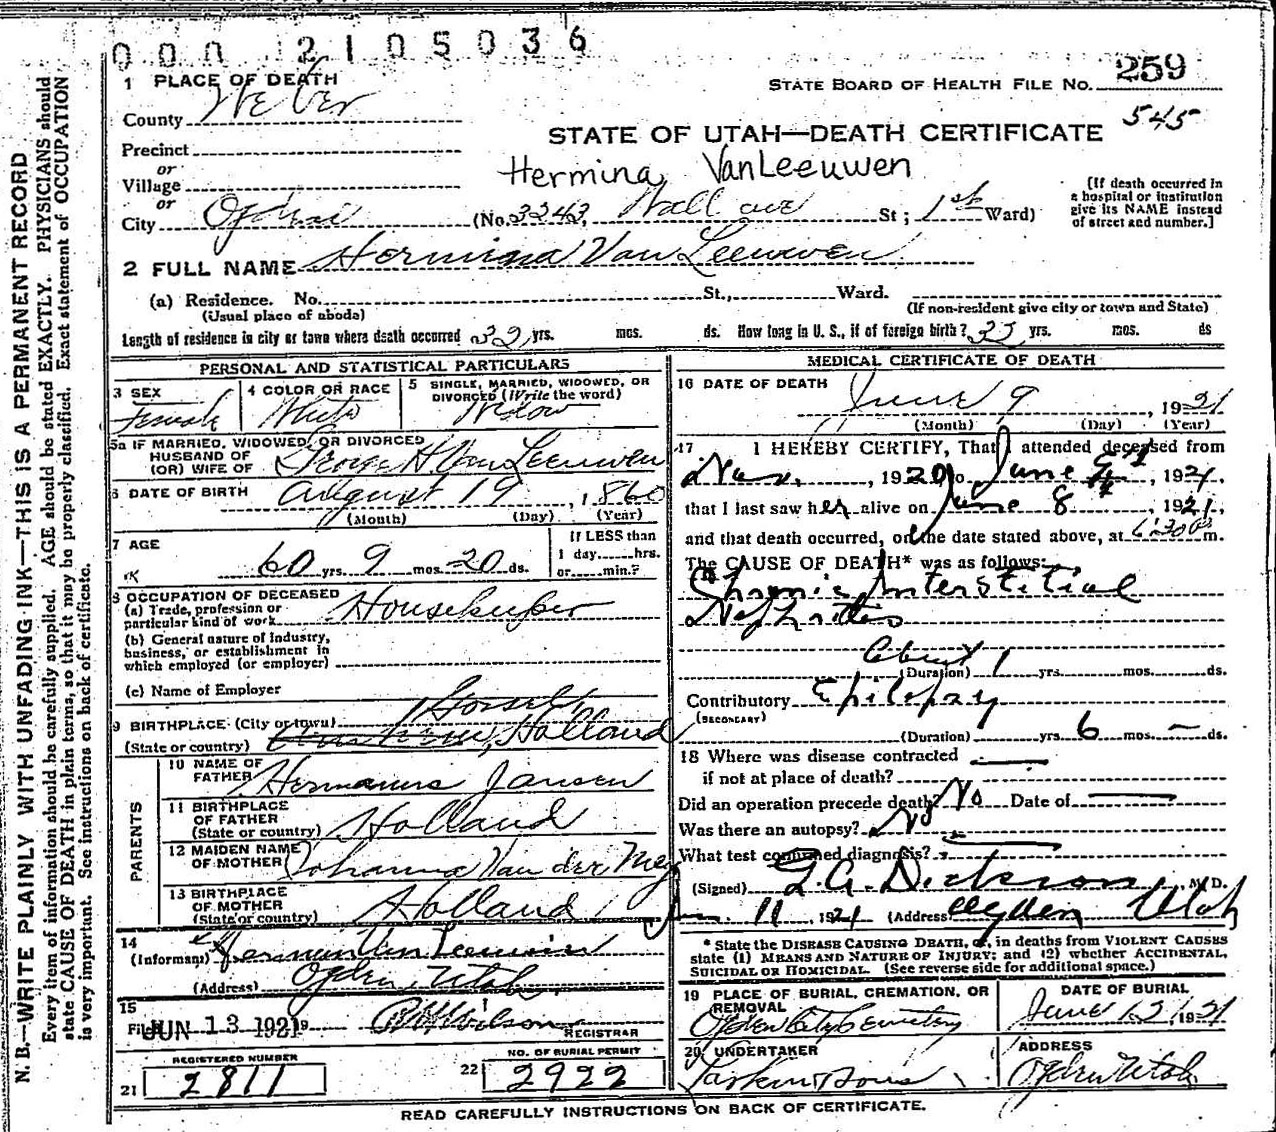 000 2105036
1 PLACE OF DEATH
STATE BOARD OF HEALTH FILE NO. 259
County Weber
545
STATE OF UTAH—DEATH CERTIFICATE
Precinct
or
Village
Hermina VanLeeuwen
[If death occurred in a hospital or institution give its NAME instead of street and number.]
or
City Ogden (No. 3243, Wall ave St; 1st Ward)
2 FULL NAME Hermina Van Leeuwen
(a) Residence. No. St., Ward.
(Usual place of abode) (If non-resident give city or town and State)
Length of residence in city or town where death occurred 32 yrs. mos. ds. How long in U. S., if of foreign birth? yrs. mos. ds
PERSONAL AND STATISTICAL PARTICULARS
3 SEX Female
4 COLOR OR RACE White
5 SINGLE, MARRIED, WIDOWED, OR DIVORCED (Write the word) Widow
5a IF MARRIED, WIDOWED, OR DIVORCED
HUSBAND OF
(OR) WIFE OF George H. Van Leeuwen
6 DATE OF BIRTH August 19, 1860
(Month) (Day) (Year)
7 AGE
60 yrs. 9 mos. 20 ds.
If LESS than
1 day......hrs.
or......min.?
8 OCCUPATION OF DECEASED
(a) Trade, profession or
particular kind of work Housekeeper
(b) General nature of industry,
business, or establishment in
which employed (or employer)
(c) Name of Employer
9 BIRTHPLACE (City or town)
(State or country) Holland
PARENTS
10 NAME OF
FATHER Hermanus Jansen
11 BIRTHPLACE
OF FATHER
(State or country) Holland
12 MAIDEN NAME
OF MOTHER Johanna Van der Mey
13 BIRTHPLACE
OF MOTHER
(State or country) Holland
14
(Informant) Herman Van Leeuwen
(Address) Ogden Utah
15
Filed JUN 13 1921 Wilson REGISTRAR
REGISTERED NUMBER
21 2811
NO. OF BURIAL PERMIT
22 2922
MEDICAL CERTIFICATE OF DEATH
16 DATE OF DEATH
June 9, 1921
(Month) (Day) (Year)
17 I HEREBY CERTIFY, That I attended deceased from
Nov., 1920, to June, 1921,
that I last saw her alive on June 8, 1921,
and that death occurred, on the date stated above, at 6:30 m.
The CAUSE OF DEATH* was as follows:
Chronic Interstitial
Nephritis
about 1
(Duration) yrs. mos. ds.
Contributory Epilepsy
(SECONDARY)
(Duration) yrs. 6 mos. — ds.
18 Where was disease contracted
if not at place of death?
Did an operation precede death? No Date of
Was there an autopsy? No
What test confirmed diagnosis?
(Signed) Dickson, M. D.
Jun. 11, 1921 (Address) Ogden Utah
* State the DISEASE CAUSING DEATH, or, in deaths from VIOLENT CAUSES
state (1) MEANS AND NATURE OF INJURY; and (2) whether ACCIDENTAL,
SUICIDAL OR HOMICIDAL. (See reverse side for additional space.)
19 PLACE OF BURIAL, CREMATION, OR
REMOVAL
Ogden City Cemetery
DATE OF BURIAL
June 12, 1921
20 UNDERTAKER
Larkin Sons
ADDRESS
Ogden Utah
READ CAREFULLY INSTRUCTIONS ON BACK OF CERTIFICATE.
N. B.—WRITE PLAINLY WITH UNFADING INK—THIS IS A PERMANENT RECORD
Every item of information should be carefully supplied. AGE should be stated EXACTLY. PHYSICIANS should
state CAUSE OF DEATH in plain terms, so that it may be properly classified. Exact statement of OCCUPATION
is very important. See instructions on back of certificate.